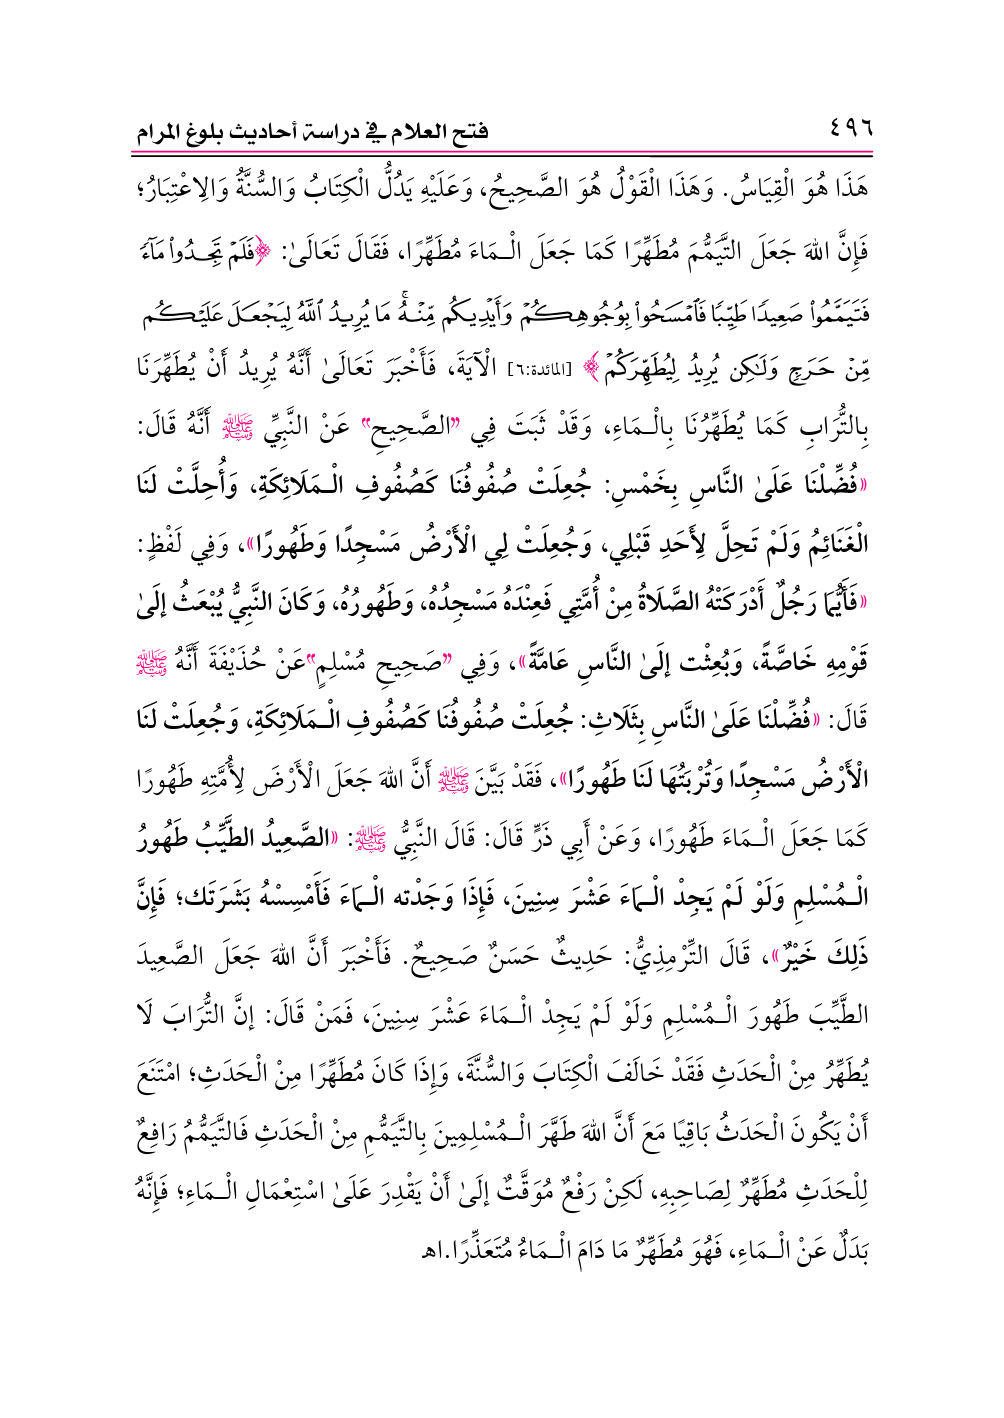 ٤٩٦ فتح العلام في دراسة أحاديث بلوغ المرام
هَذَا هُوَ الْقِيَاسُ. وَهَذَا الْقَوْلُ هُوَ الصَّحِيحُ، وَعَلَيْهِ يَدُلُّ الْكِتَابُ وَالسُّنَّةُ وَالِاعْتِبَارُ؛
فَإِنَّ اللهَ جَعَلَ التَّيَمُّمَ مُطَهِّرًا كَمَا جَعَلَ الْـمَاءَ مُطَهِّرًا، فَقَالَ تَعَالَىٰ: ﴿فَلَمۡ تَجِدُواْ مَآءٗ
فَتَيَمَّمُواْ صَعِيدٗا طَيِّبٗا فَٱمۡسَحُواْ بِوُجُوهِكُمۡ وَأَيۡدِيكُم مِّنۡهُۚ مَا يُرِيدُ ٱللَّهُ لِيَجۡعَلَ عَلَيۡكُم
مِّنۡ حَرَجٖ وَلَٰكِن يُرِيدُ لِيُطَهِّرَكُمۡ﴾ [المائدة:٦] الْآيَةَ، فَأَخْبَرَ تَعَالَىٰ أَنَّهُ يُرِيدُ أَنْ يُطَهِّرَنَا
بِالتُّرَابِ كَمَا يُطَهِّرُنَا بِالْـمَاءِ، وَقَدْ ثَبَتَ فِي "الصَّحِيحِ" عَنْ النَّبِيِّ ﷺ أَنَّهُ قَالَ:
«فُضِّلْنَا عَلَىٰ النَّاسِ بِخَمْسٍ: جُعِلَتْ صُفُوفُنَا كَصُفُوفِ الْـمَلَائِكَةِ، وَأُحِلَّتْ لَنَا
الْغَنَائِمُ وَلَمْ تَحِلَّ لِأَحَدٍ قَبْلِي، وَجُعِلَتْ لِي الْأَرْضُ مَسْجِدًا وَطَهُورًا»، وَفِي لَفْظٍ:
«فَأَيُّمَا رَجُلٌ أَدْرَكَتْهُ الصَّلَاةُ مِنْ أُمَّتِي فَعِنْدَهُ مَسْجِدُهُ، وَطَهُورُهُ، وَكَانَ النَّبِيُّ يُبْعَثُ إلَىٰ
قَوْمِهِ خَاصَّةً، وَبُعِثْت إلَىٰ النَّاسِ عَامَّةً»، وَفِي "صَحِيحِ مُسْلِمٍ"عَنْ حُذَيْفَةَ أَنَّهُ ﷺ
قَالَ: «فُضِّلْنَا عَلَىٰ النَّاسِ بِثَلَاثٍ: جُعِلَتْ صُفُوفُنَا كَصُفُوفِ الْـمَلَائِكَةِ، وَجُعِلَتْ لَنَا
الْأَرْضُ مَسْجِدًا وَتُرْبَتُهَا لَنَا طَهُورًا»، فَقَدْ بَيَّنَ ﷺ أَنَّ اللهَ جَعَلَ الْأَرْضَ لِأُمَّتِهِ طَهُورًا
كَمَا جَعَلَ الْـمَاءَ طَهُورًا، وَعَنْ أَبِي ذَرٍّ قَالَ: قَالَ النَّبِيُّ ﷺ: «الصَّعِيدُ الطَّيِّبُ طَهُورُ
الْـمُسْلِمِ وَلَوْ لَمْ يَجِدْ الْـمَاءَ عَشْرَ سِنِينَ، فَإِذَا وَجَدْته الْـمَاءَ فَأَمْسِسْهُ بَشَرَتَك؛ فَإِنَّ
ذَلِكَ خَيْرٌ»، قَالَ التِّرْمِذِيُّ: حَدِيثٌ حَسَنٌ صَحِيحٌ. فَأَخْبَرَ أَنَّ اللهَ جَعَلَ الصَّعِيدَ
الطَّيِّبَ طَهُورَ الْـمُسْلِمِ وَلَوْ لَمْ يَجِدْ الْـمَاءَ عَشْرَ سِنِينَ، فَمَنْ قَالَ: إنَّ التُّرَابَ لَا
يُطَهِّرُ مِنْ الْحَدَثِ فَقَدْ خَالَفَ الْكِتَابَ وَالسُّنَّةَ، وَإِذَا كَانَ مُطَهِّرًا مِنْ الْحَدَثِ؛ امْتَنَعَ
أَنْ يَكُونَ الْحَدَثُ بَاقِيًا مَعَ أَنَّ اللهَ طَهَّرَ الْـمُسْلِمِينَ بِالتَّيَمُّمِ مِنْ الْحَدَثِ فَالتَّيَمُّمُ رَافِعٌ
لِلْحَدَثِ مُطَهِّرٌ لِصَاحِبِهِ، لَكِنْ رَفْعٌ مُوَقَّتٌ إلَىٰ أَنْ يَقْدِرَ عَلَىٰ اسْتِعْمَالِ الْـمَاءِ؛ فَإِنَّهُ
بَدَلٌ عَنْ الْـمَاءِ، فَهُوَ مُطَهِّرٌ مَا دَامَ الْـمَاءُ مُتَعَذِّرًا.اهـ